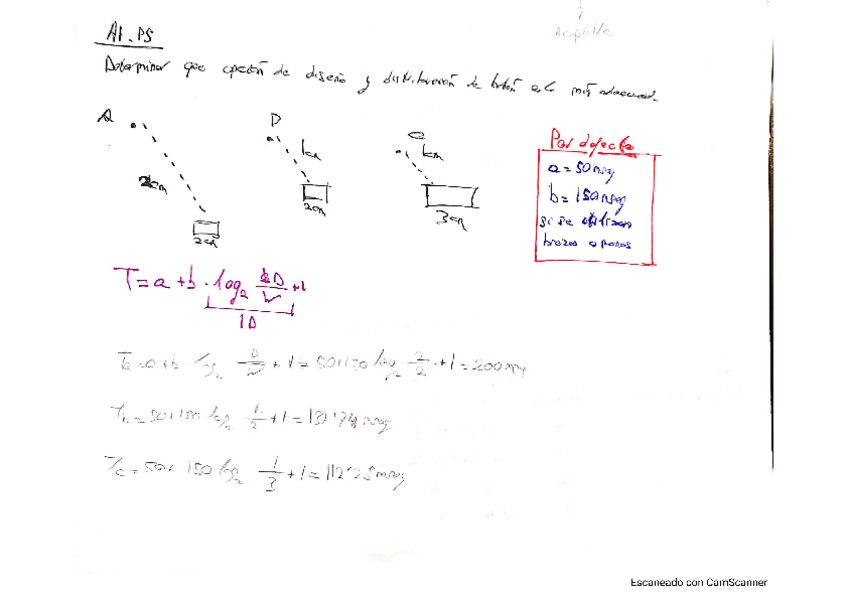 Aceptable
A1. PS
Determinar que opción de diseño y distribución de botón es la más adecuada.
A
2cm
2cm
D
1cm
2cm
C
1cm
3cm
Por defecto
a = 50 msg
b = 150 msg
si se utilizan
brazos o manos
T = a + b · log₂ D/W + 1
ID
Ta = a + b log₂ D/W + 1 = 50 + 150 log₂ 2/2 + 1 = 200 msg
= 50 + 150 log₂ 1/2 + 1 = 137'74 msg
Tc = 50 + 150 log₂ 1/3 + 1 = 112'25 mseg
Escaneado con CamScanner